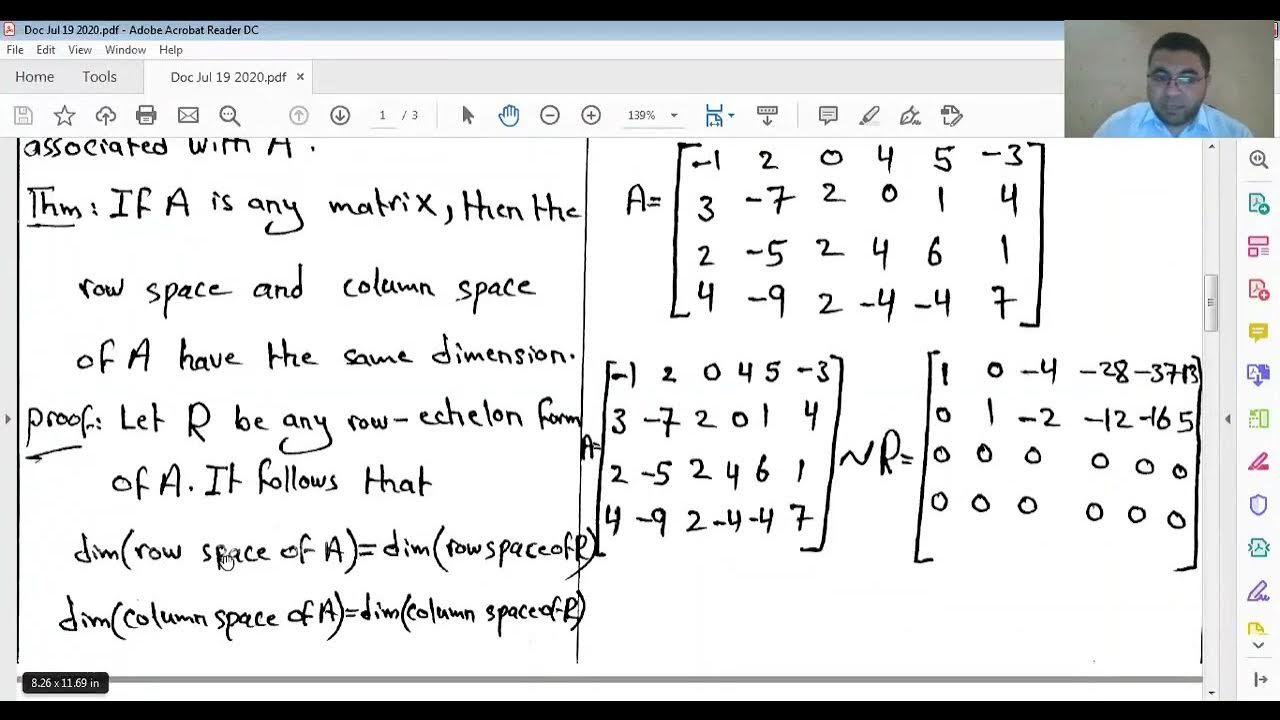 Doc Jul 19 2020.pdf - Adobe Acrobat Reader DC
File Edit View Window Help
Home Tools Doc Jul 19 2020.pdf ×
1 / 3 139%
associated with A.
Thm: If A is any matrix, then the
row space and column space
of A have the same dimension.
proof: Let R be any row-echelon form
of A. It follows that
dim(row space of A)=dim(row space of R)
dim(column space of A)=dim(column space of R)
A= [-1 2 0 4 5 -3
3 -7 2 0 1 4
2 -5 2 4 6 1
4 -9 2 -4 -4 7]
A= [-1 2 0 4 5 -3
3 -7 2 0 1 4
2 -5 2 4 6 1
4 -9 2 -4 -4 7]
~R= [1 0 -4 -28 -37 13
0 1 -2 -12 -16 5
0 0 0 0 0 0
0 0 0 0 0 0]
8.26 x 11.69 in